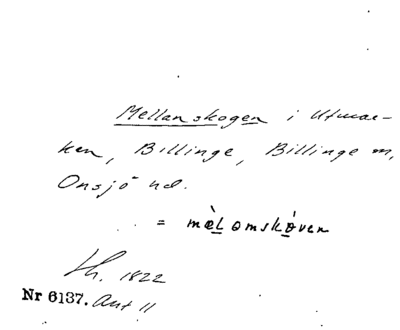 Mellanskogen i Utmar-
ken, Billinge, Billinge sn,
Onsjö hd.
= mèLomskóven
Lh. 1822
Nr 6137. Ant 11